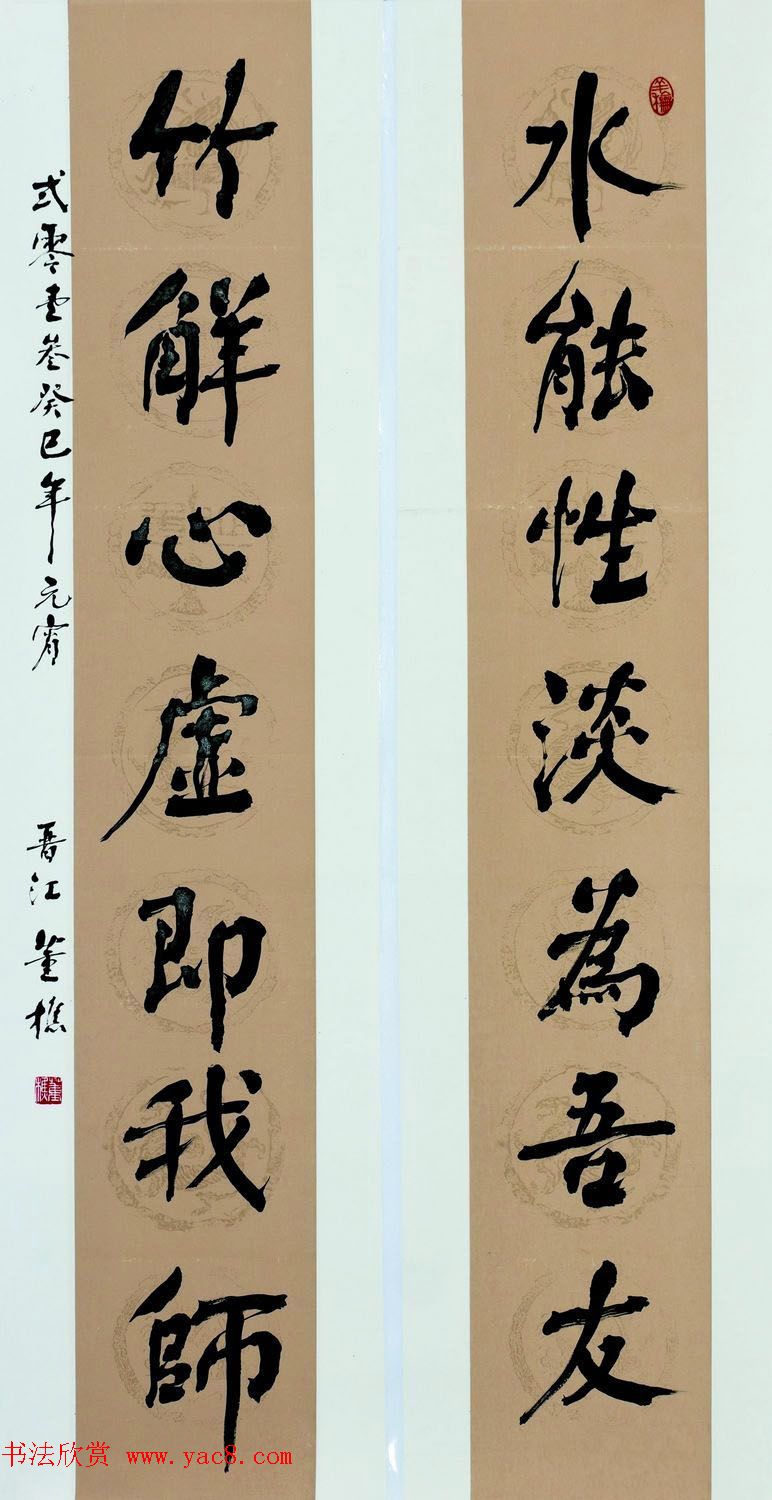 水能性淡為吾友
竹解心虛即我師
弍零壹叁癸巳年元宵
晉江董樵
书法欣赏 www.yac8.com